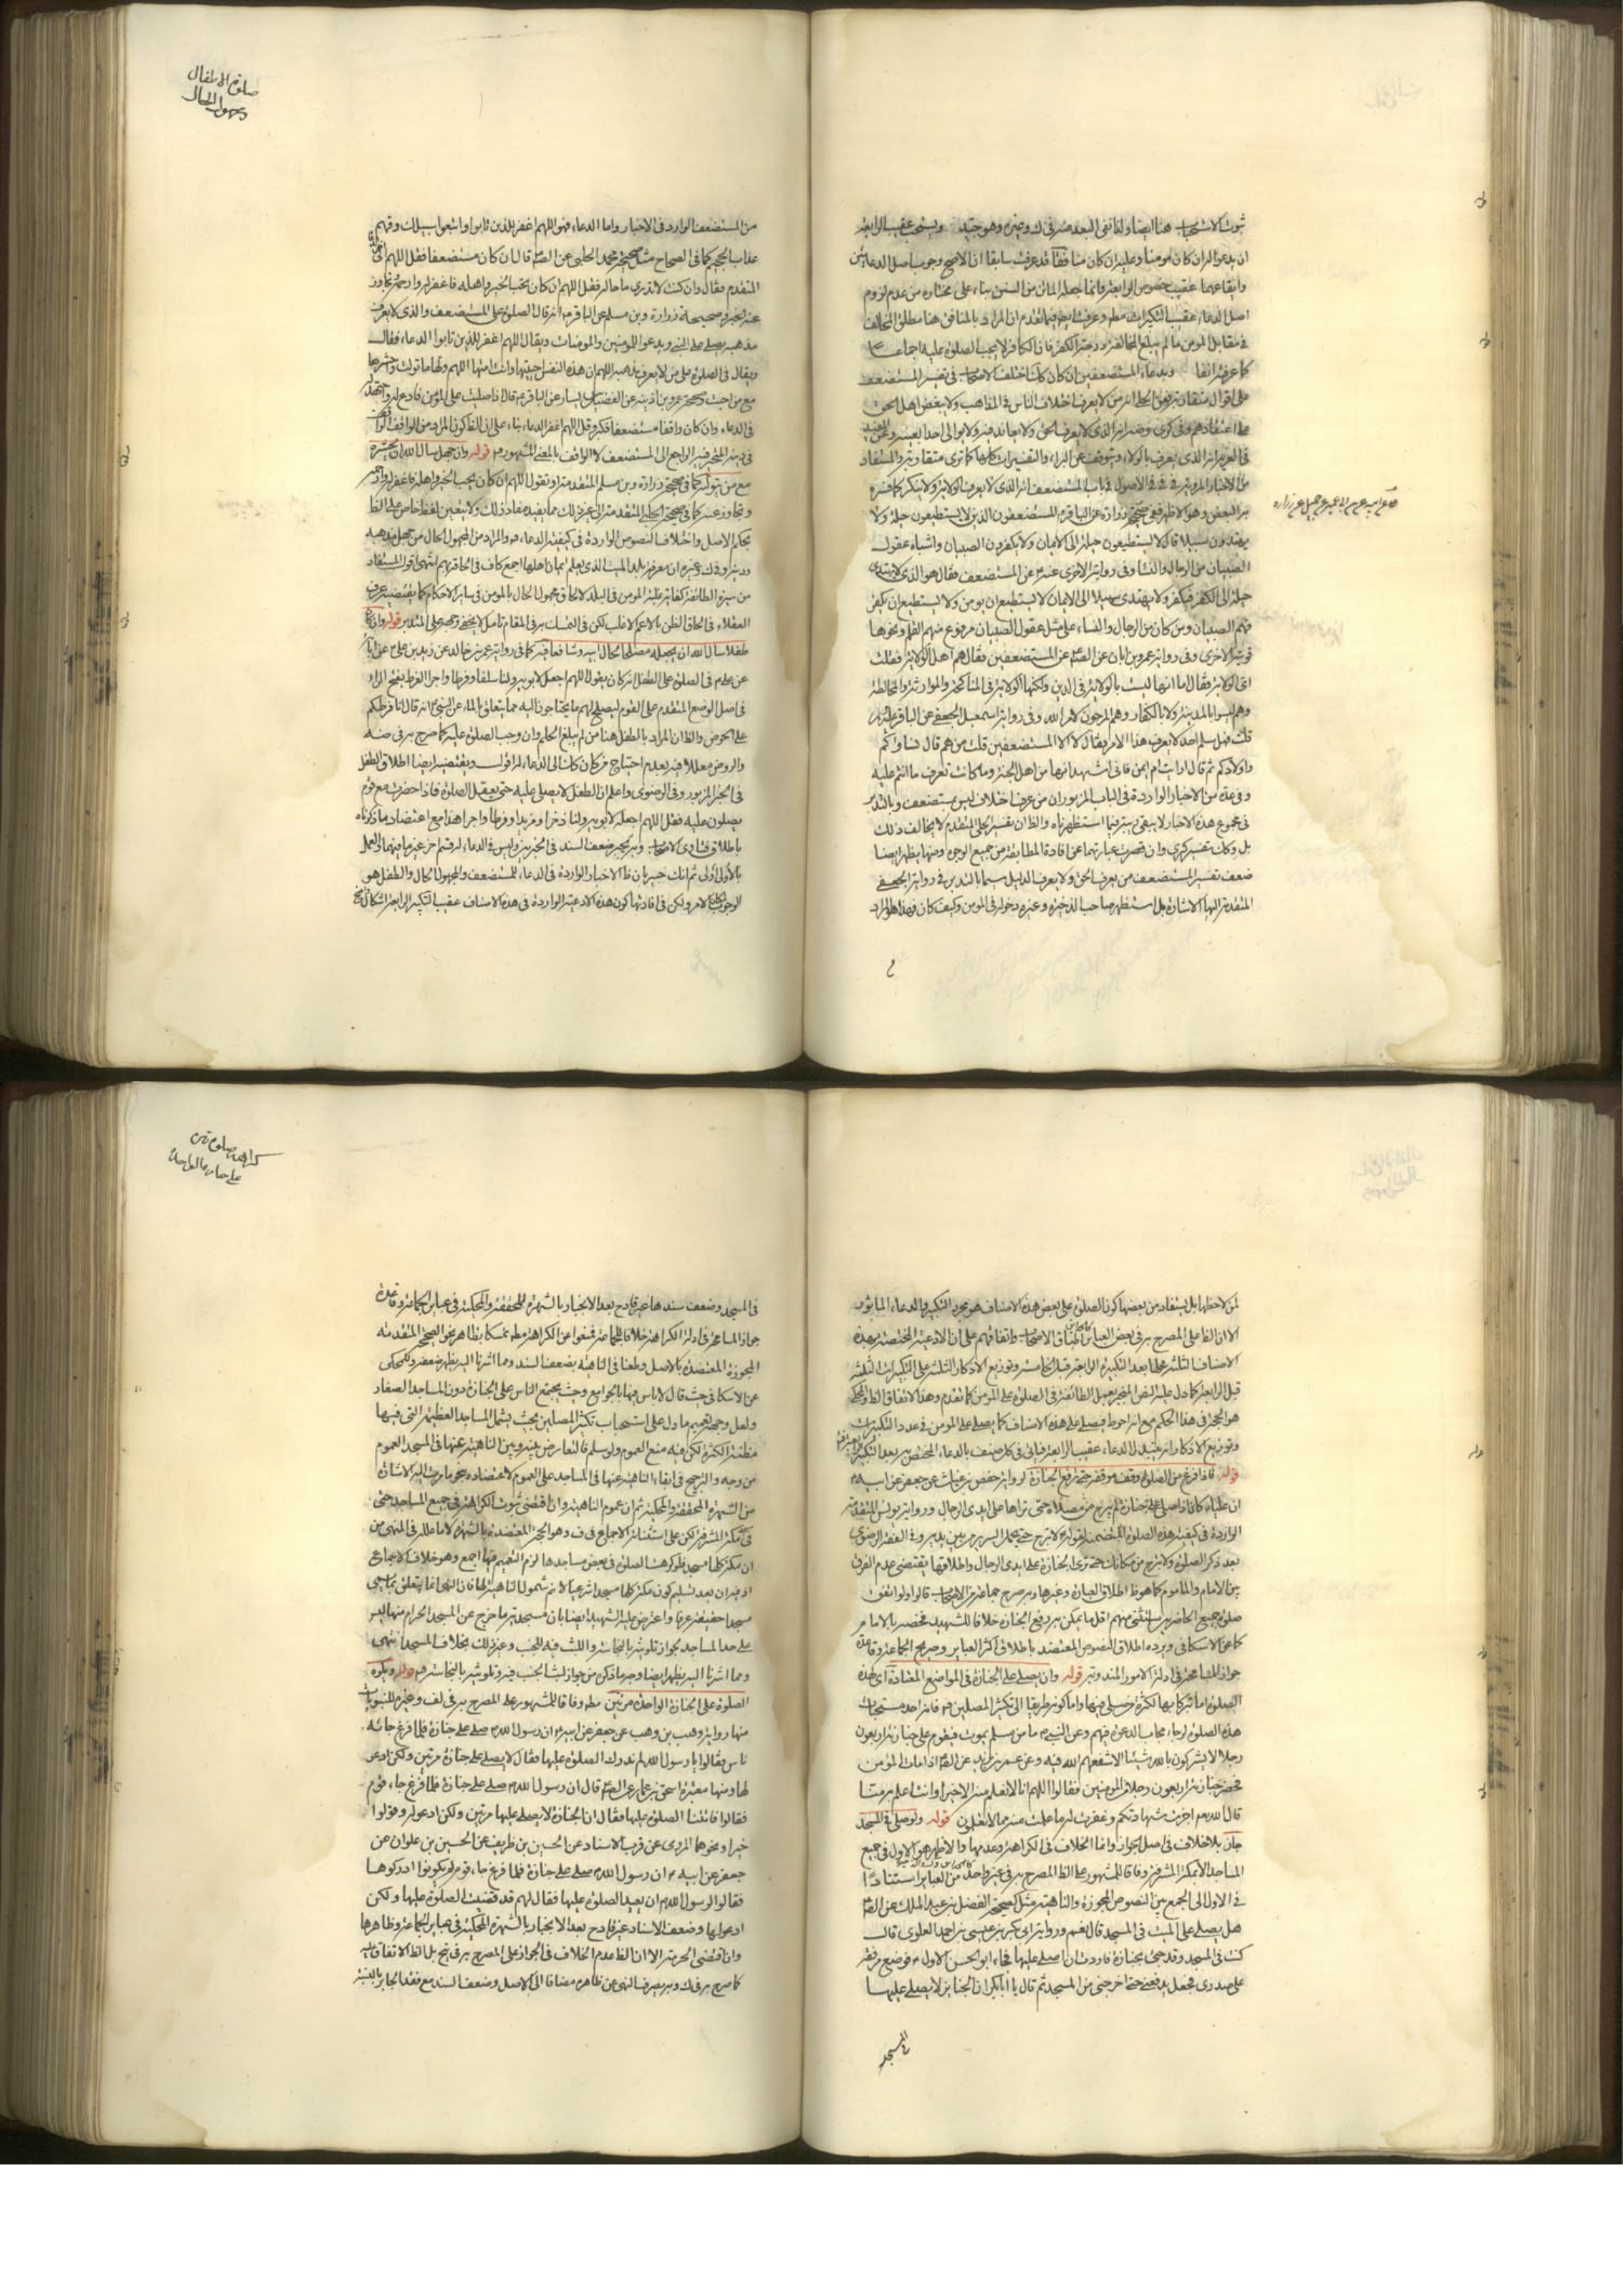 ثبوت الاستحباب هنا ايضا ولنا نفى البعد عنه فى ك وغيره وهو جيد ويستحب عقيب الرابعة
ان يدعو له ان كان مؤمنا وعليه ان كان منافقا قد عرفت سابقا ان الاصح وجوب اصل الدعائين
وايقاعهما عقيب خصوص الرابعة وانما جعله الماتن من السنن بناء على مختاره من عدم لزوم
اصل الدعاء عقيب التكبيرات مطم وعرفت ايضا فيما تقدم ان المراد بالمنافق هنا مطلق المخالف
فى مقابل المؤمن ما لم يبلغ المخالفة درجة الكفر فان الكافر لا يجب الصلوة عليه اجماعا
كما عرفته انفا وبدعاء المستضعفين ان كان كك اختلف الاصحاب فى تفسير المستضعف
على اقوال متقاربة فعن الحلى انه من لا يعرف اختلاف الناس فى المذاهب ولا يبغض اهل الحق
على اعتقادهم وفى كرى وضه انه الذى لا يعرف الحق ولا يعاند فيه ولا يوالى احدا بعينه وعن المفيد
فى العزية انه الذى يعرف بالولاء ويتوقف عن البراء والتفسيرات كلها كما ترى متقاربة والمستفاد
من الاخبار المروية فى فى الاصول فى باب المستضعف انه الذى لا يعرف الولاية ولا ينكر كما فسره
به البعض وهو الاظهر ففى صحيحة زرارة عن الباقر ع المستضعفون الذين لا يستطيعون حيلة ولا
يهتدون سبيلا قال لا يستطيعون حيلة الى الايمان ولا يكفرون الصبيان واشباه عقول
الصبيان من الرجال والنساء وفى روايته الاخرى عنه ع عن المستضعف فقال هو الذى لا يهتدى
حيلة الى الكفر فيكفر ولا يهتدى سبيلا الى الايمان لا يستطيع ان يؤمن ولا يستطيع ان يكفر
فهم الصبيان ومن كان من الرجال والنساء على مثل عقول الصبيان مرفوع عنهم القلم ونحوها
الاخرى وفى رواية عمرو بن ابان عن الصه عن المستضعفين فقال هم اهل الولاية فقلت
اى الولاية فقال اما انها ليست بالولاية فى الدين ولكنها الولاية فى المناكحة والموارثة والمخالطة
وهم ليسوا بالمؤمنين ولا بالكفار وهم المرجون لامر الله وفى رواية اسمعيل الجعفى عن الباقر عليه
قلت فهل سلم احد لا يعرف هذا الامر فقال لا الا المستضعفين قلت من هم قال نساؤكم
واولادكم ثم قال ارايت ام ايمن فانى اشهد انها من اهل الجنة وما كانت تعرف ما انتم عليه
وفى عدة من الاخبار الواردة فى الباب المزبور ان من عرف اختلاف ليس بمستضعف وبالتدبر
فى مجموع هذه الاخبار لا يبقى ريبة فيما استظهرناه والظ ان تفسير الحلى المتقدم لا يخالف ذلك
بل وكك تفسير كرى وان قصرت عبارتهما عن افادة المطابقة من جميع الوجوه ومنها يظهر ايضا
ضعف تفسير المستضعف من يعرف الحق ولا يعرف الدليل سيما بالتدبر فى رواية الجعفى
المتقدمة اليها الاشارة بل استظهر صاحب الذخيرة وغيره دخوله فى المؤمن وكيف كان فهذا هو المراد
صلوة الاطفال
ومجهول الحال
من المستضعف الوارد فى الاخبار واما الدعاء فهو اللهم اغفر للذين تابوا واتبعوا سبيلك وقهم
عذاب الجحيم كما فى الصحاح مثل صحيحة محمد الحلبى عن الصه قال ان كان مستضعفا فقل اللهم
المتقدم فقال وان كنت لا تدرى ما حاله فقل اللهم ان كان يحب الخير واهله فاغفر له وارحمه وتجاوز
عنه الخبر وصحيحة زرارة وبن مسلم عن الباقر ع انه قال الصلوة على المستضعف والذى لا يعرف
مذهبه يصلى على النبى ويدعو للمؤمنين والمؤمنات ويقال اللهم اغفر للذين تابوا الدعاء فقال
ويقال فى الصلوة على من لا يعرف مذهبه اللهم ان هذه النفس احييتها وانت امتها اللهم ولها ما تولت واحشرها
مع من احبت وصحيحة عمر بن اذينة عن الفضيل بن يسار عن الباقر ع قال اذا صليت على المؤمن فادع له واجتهد
فى الدعاء وان كان واقفا مستضعفا فكبر وقل اللهم اغفر الدعاء بناء على ان الظ كون المراد من الواقف
وان جهل سال الله ان يحشره
مع من يتولاه كما فى صحيحة زرارة وبن مسلم المتقدمة او تقول اللهم ان كان يحب الخير واهله فاغفر له وارحمه
وتجاوز عنه كما فى صحيحة الحلبى المتقدمة الى غير ذلك مما يفيد مفاد ذلك ولا يتعين لفظ خاص على الظ
بحكم الاصل واختلاف النصوص الواردة فى كيفية الدعاء والمراد من المجهول الحال من جهل مذهبه
من سيرة الطائفة كفاية غلبة المؤمن فى البلد لالحاق مجهول الحال بالمؤمن فى ساير الاحكام كما يقتضيه عرف
العقلاء فى الحاق الظن بالاعم الاغلب لكن فى التمسك به فى المقام تامل لا يخفى وجهه على المتدبر قوله وان كان
طفلا سال الله ان يجعله مصلحا لحال ابيه وشافعا فيه كما فى رواية عمرو بن خالد عن زيد بن على ع عن ابائه
عن على ع فى الصلوة على الطفل انه كان يقول اللهم اجعله لابويه ولنا سلفا وفرطا واجرا الفرط بفتح الراء
فى اصل الوضع المتقدم على القوم ليصلح لهم ما يحتاجون اليه مما يتعلق بالماء عن النبى ص انه قال انا فرطكم
على الحوض والظ ان المراد بالطفل هنا من لم يبلغ الحلم وان وجب الصلوة عليه كما صرح به فى ضه
والروض معللا فيه بعدم احتياج من كان كك الى الدعاء له اقول ويقتضيه ايضا اطلاق الطفل
فى الخبر المزبور وفى الرضوى واعلم ان الطفل لا يصلى عليه حتى يعقل الصلوة فاذا حضرت مع قوم
يصلون عليه فقل اللهم اجعله لابويه ولنا ذخرا ومزيدا وفرطا واجرا هذا مع اعتضاد ما ذكرناه
باطلاق فتاوى الاصحاب وبه ينجبر ضعف السند فى الخبرين وليس فى الدعاء له قسم اخر غير ما فيهما والعمل
بالاولى اولى ثم انك خبير بان ظ الاخبار الواردة فى الدعاء للمستضعف والمجهول الحال والطفل هو
الوجوب للامر ولكن فى افادتها كون هذه الادعية الواردة فى هذه الاصناف عقيب التكبير الرابعة اشكال
لمن لاحظها بل يستفاد من بعضها كون الصلوة على بعض هذه الاصناف هو مجرد التكبير والدعاء الماثور
الا ان الظ على المصرح به فى بعض العباير اطباق الاصحاب واتفاقهم على ان الادعية المختصة بهذه
الاصناف الثلثة محلها بعد التكبيرة الرابعة قبل الخامسة وتوزيع الاذكار الثلثة على التكبيرات الثلثة
قبل الرابعة كما دل عليه النص المنجبر بعمل الطائفة فى الصلوة على المؤمن كما تقدم وهذا الاتفاق الظ والمحكى
هو الحجة فى هذا الحكم مع انه احوط فيصلى على هذه الاصناف كما يصلى على المؤمن فى عدد التكبيرات
وتوزيع الاذكار الا انه يتبدل الدعاء عقيب الرابعة فياتى فى كل صنف بالدعاء المختص به بعد التكبير
قوله فاذا فرغ من الصلوة وقف موقفه حتى ترفع الجنازة لرواية حفص بن غياث عن جعفر عن ابيه ع
ان عليا ع كان اذا صلى على جنازة لم يبرح من مصلاه حتى يراها على ايدى الرجال ورواية يونس المتقدمة
الواردة فى كيفية هذه الصلوة المتضمنة لقوله ع لا تبرح حتى يحمل السرير من بين يديه وفى الفقه الرضوى
بعد ذكر الصلوة ولا تبرح من مكانك حتى ترى الجنازة على ايدى الرجال واطلاقها يقتضى عدم الفرق
بين الامام والماموم كما هو ظ اطلاق العبارة وغيرها وبه صرح جماعة من الاصحاب قالوا ولو اتفق
صلوة جميع الحاضرين استثنى منهم اقل ما يمكن به رفع الجنازة خلافا للشهيد فخصه بالامام
كما عن الاسكافى ويرده اطلاق النصوص المعتضد باطلاق اكثر العباير وصريح الجماعة وقاعدة
جواز المسامحة فى ادلة الامور المندوبة قوله وان يصلى على الجنازة فى المواضع المعتادة اى لهذه
الصلوة اما تبركا بها لكثرة من صلى فيها واما كونه طريقا الى تكثير المصلين فانه احد مستحبات
هذه الصلوة لرجاء مجاب الدعوة فيهم وعن النبى ص ما من مسلم يموت فيقوم على جنازته اربعون
رجلا لا يشركون بالله شيئا الا شفعهم الله فيه وعن عمر بن يزيد عن الصه اذا مات المؤمن
فحضر جنازته اربعون رجلا من المؤمنين فقالوا اللهم انا لا نعلم منه الا خيرا وانت اعلم به منا
قال الله تعم اجزت شهادتكم وغفرت له ما علمت منه مما لا تعلمون قوله ولو صلى فى المسجد
جاز بلا خلاف فى اصل الجواز وانما الخلاف فى الكراهة وعدمها والاظهر هو الاول فى جميع
المساجد الا مكة المشرفة وفاقا للمشهور على الظ المصرح به فى غير واحد من العباير استنادا
فى الاول الى الجمع بين النصوص المجوزة والناهية مثل صحيحة الفضل بن عبد الملك عن الصه
هل يصلى على الميت فى المسجد قال نعم ورواية ابى بكر بن عيسى بن احمد العلوى قال
كنت فى المسجد وقد جئ بجنازة فاردت ان اصلى عليها فجاء ابو الحسن الاول ع فوضع مرفقه
على صدرى فجعل يدفعنى حتى اخرجنى من المسجد ثم قال يا ابا بكر ان الجنايز لا يصلى عليها
المسجد
فى المسجد وضعف سندها غير قادح بعد الانجبار بالشهرة المحققة والمحكية فى عباير الجماعة وقاعدة
جواز المسامحة فى ادلة الكراهة خلافا لجماعة فمنعوا عن الكراهة مطم تمسكا بظاهر نحو الصحيحة المتقدمة
المجوزة المعتضدة بالاصل وطعنا فى الناهية بضعف السند ومما اشرنا اليه يظهر ضعفه وللمحكى
عن الاسكافى حيث قال لا باس فيها بالجوامع وحيث يجتمع الناس على الجنازة دون المساجد الصغار
ولعل وجهه تعميم ما دل على استحباب تكثير المصلين بحيث يشمل المساجد العظيمة التى فيها
مظنة الكثرة لكن فيه منع العموم ولو سلم فالتعارض بينه وبين الناهية عنها فى المسجد العموم
من وجه والترجيح فى ابقاء الناهية عنها فى المساجد على العموم لاعتضاده بنحو ما مرت اليه الاشارة
من الشهرة المحققة والمحكية ثم ان عموم الناهية وان اقتضى ثبوت الكراهة فى جميع المساجد حتى
فى مكة المشرفة لكن على استثنائه الاجماع فى ف وهو الحجة المعتضدة بالشهرة لا ما علله فى المنتهى من
ان مكة كلها مسجد فلو كرهت الصلوة فى بعض مساجدها لزم التعميم فيها اجمع وهو خلاف الاجماع
اذ فيه ان بعد تسليم كون مكة كلها مسجدا شرعيا لا نم شمول الناهية لها فان النهى انما يتعلق بما سمى
مسجدا حقيقة عرفا واعترض عليه الشهيد ايضا بان مسجدية ما خرج عن المسجد الحرام منها ليس
على حد المساجد لجواز تلويثه بالنجاسة واللبث فيه للجنب وغير ذلك بخلاف المسجد انتهى
ومما اشرنا اليه يظهر ايضا وجه ما ذكره من جواز لبث الجنب فيه وتلويثه بالنجاسة قوله ويكره
الصلوة على الجنازة الواحدة مرتين مطم وفاقا للمشهور على المصرح به فى لف وغيره للنبويات
منها رواية وهب بن وهب عن جعفر عن ابيه ع ان رسول الله ص صلى على جنازة فلما فرغ جائه
ناس فقالوا يا رسول الله لم ندرك الصلوة عليها فقال لا يصلى على جنازة مرتين ولكن ادعو
لها ومنها معتبرة اسحق بن عمار عن الصه قال ان رسول الله ص صلى على جنازة فلما فرغ جاء قوم
فقالوا فاتتنا الصلوة عليها فقال ان الجنازة لا يصلى عليها مرتين ولكن ادعو له وقولوا
خيرا ونحوهما المروى عن قرب الاسناد عن الحسين بن ظريف عن الحسين بن علوان عن
جعفر عن ابيه ع ان رسول الله ص صلى على جنازة فلما فرغ جاء قوم لم يكونوا ادركوها
فقالوا لرسول الله ص ان يعيد الصلوة عليها فقال لهم قد قضيت الصلوة عليها ولكن
ادعوا لها وضعف الاسناد غير قادح بعد الانجبار بالشهرة المحكية فى عباير الجماعة وظاهرها
وان اقتضى الحرمة الا ان الظ عدم الخلاف فى الجواز على المصرح به فى نج بل الظ الاتفاق عليه
كما صرح به فى ك وبه يصرف النهى عن ظاهره مضافا الى الاصل وضعف السند مع فقد الجابر بالنسبة